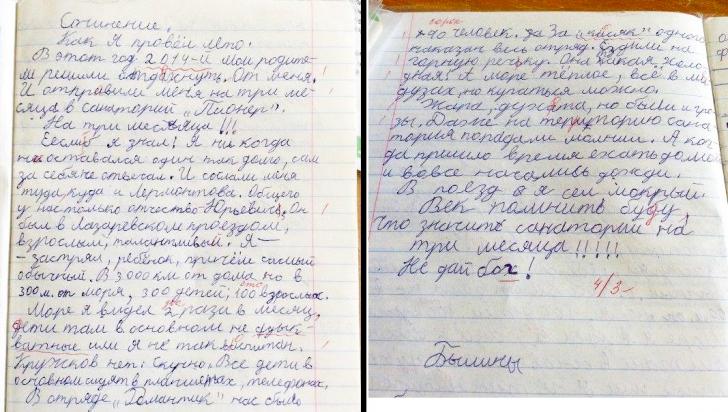 Сочинение.
Как я провёл лето.
В этот год 2014-й мои родите-
ли решили отдахнуть. От меня.
И отправили меня на три ме-
сяца в санаторий „Пионер".
На три месяца!!!
Еслиб я знал! Я ни когда
не оставался один так долго, сам
за себя не отвечал. И сослали меня
туда, куда и Лермонтова. Общего
у нас только отчество Юрьевич. Он
был в Лазаревском проездом,
взрослым, талантливый. Я—
- застрял, ребёнок, причём самый
обычный. В 3000 км от дома но в
300 м. от моря, 300 детей, 100 взрослых.
сто
Море я видел 2 раза в месяц,
два
дети там в основном не
или я не так воспитан.
Кружков нет. Скучно. Все дети в
основном сидят в планшетах, телефонах.
В отряде „Романтик" нас было
сорок
40 человек. За „касяк" одного
наказан весь отряд. Ездили на
горную речку. Она какая, холо
дная! А море тёплое, всё в ме
дузах, но купаться можно.
Жара, духота, но были и гро
зы. Даже на территорию сана
тория попадали молнии. А ког
да пришло время ехать домой
и вовсе начались дожди.
В поезд я сел мокрый.
Век помнить буду,
что значить санаторий на
три месяца!!!!!
Не дай бох!
4/3-
Былины